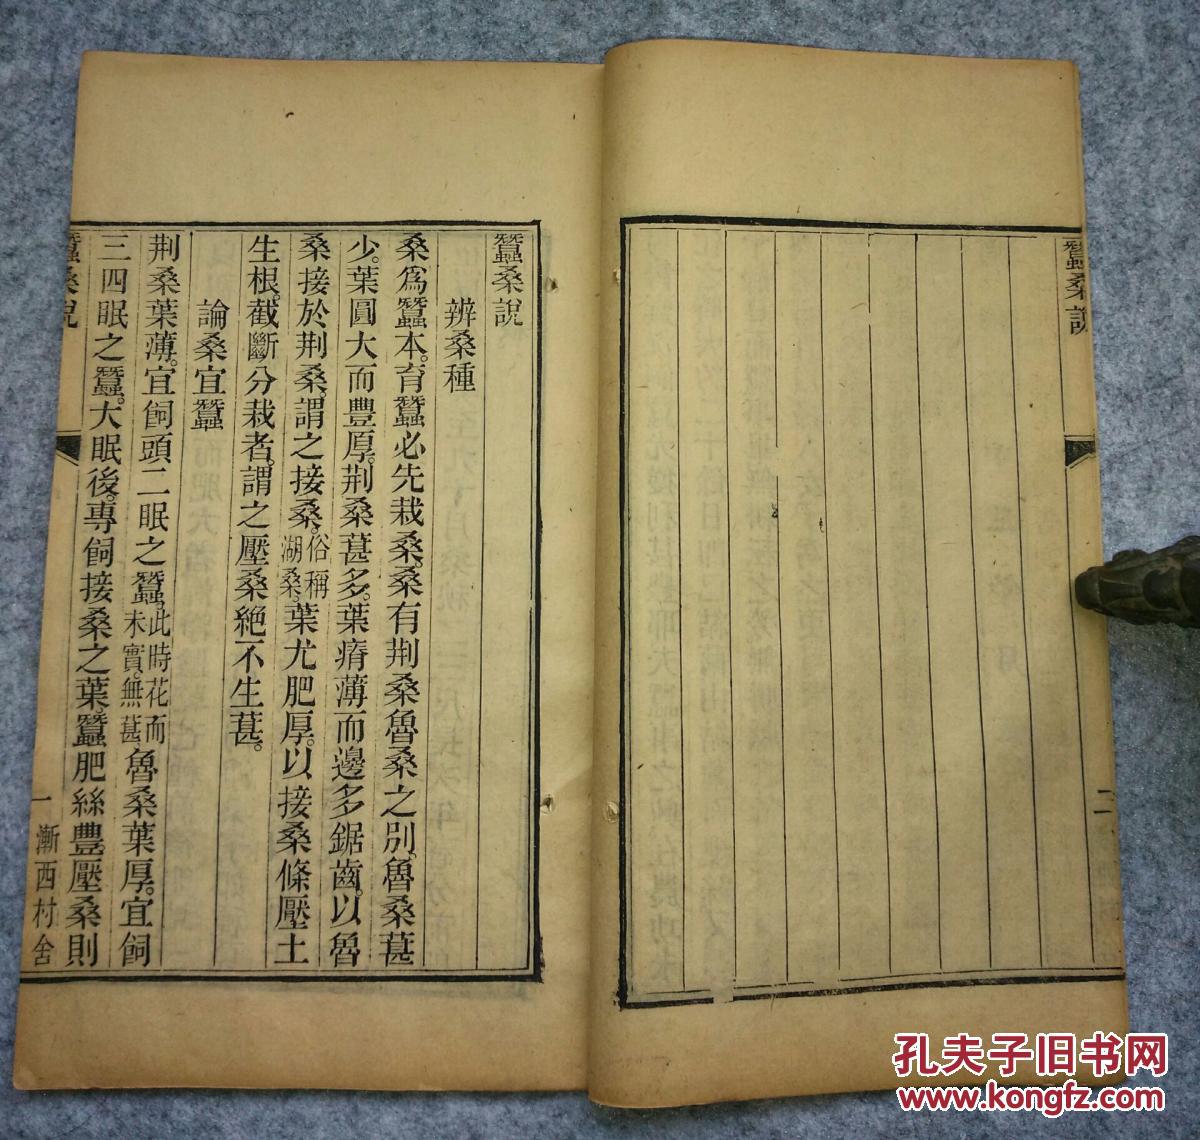 蠶桑說
二
蠶桑說
辨桑種
桑爲蠶本。育蠶必先栽桑。桑有荆桑魯桑之別。魯桑葚
少。葉圓大而豐厚。荆桑葚多。葉瘠薄而邊多鋸齒。以魯
桑接於荆桑。謂之接桑。俗稱湖桑。葉尤肥厚。以接桑條壓土
生根。截斷分栽者。謂之壓桑絶不生葚。
論桑宜蠶
荆桑葉薄。宜飼頭二眠之蠶。此時花而未實。無葚魯桑葉厚。宜飼
三四眠之蠶。大眠後。專飼接桑之葉。蠶肥絲豐壓桑則
蠶桑說
一
漸西村舍
孔夫子旧书网
www.kongfz.com